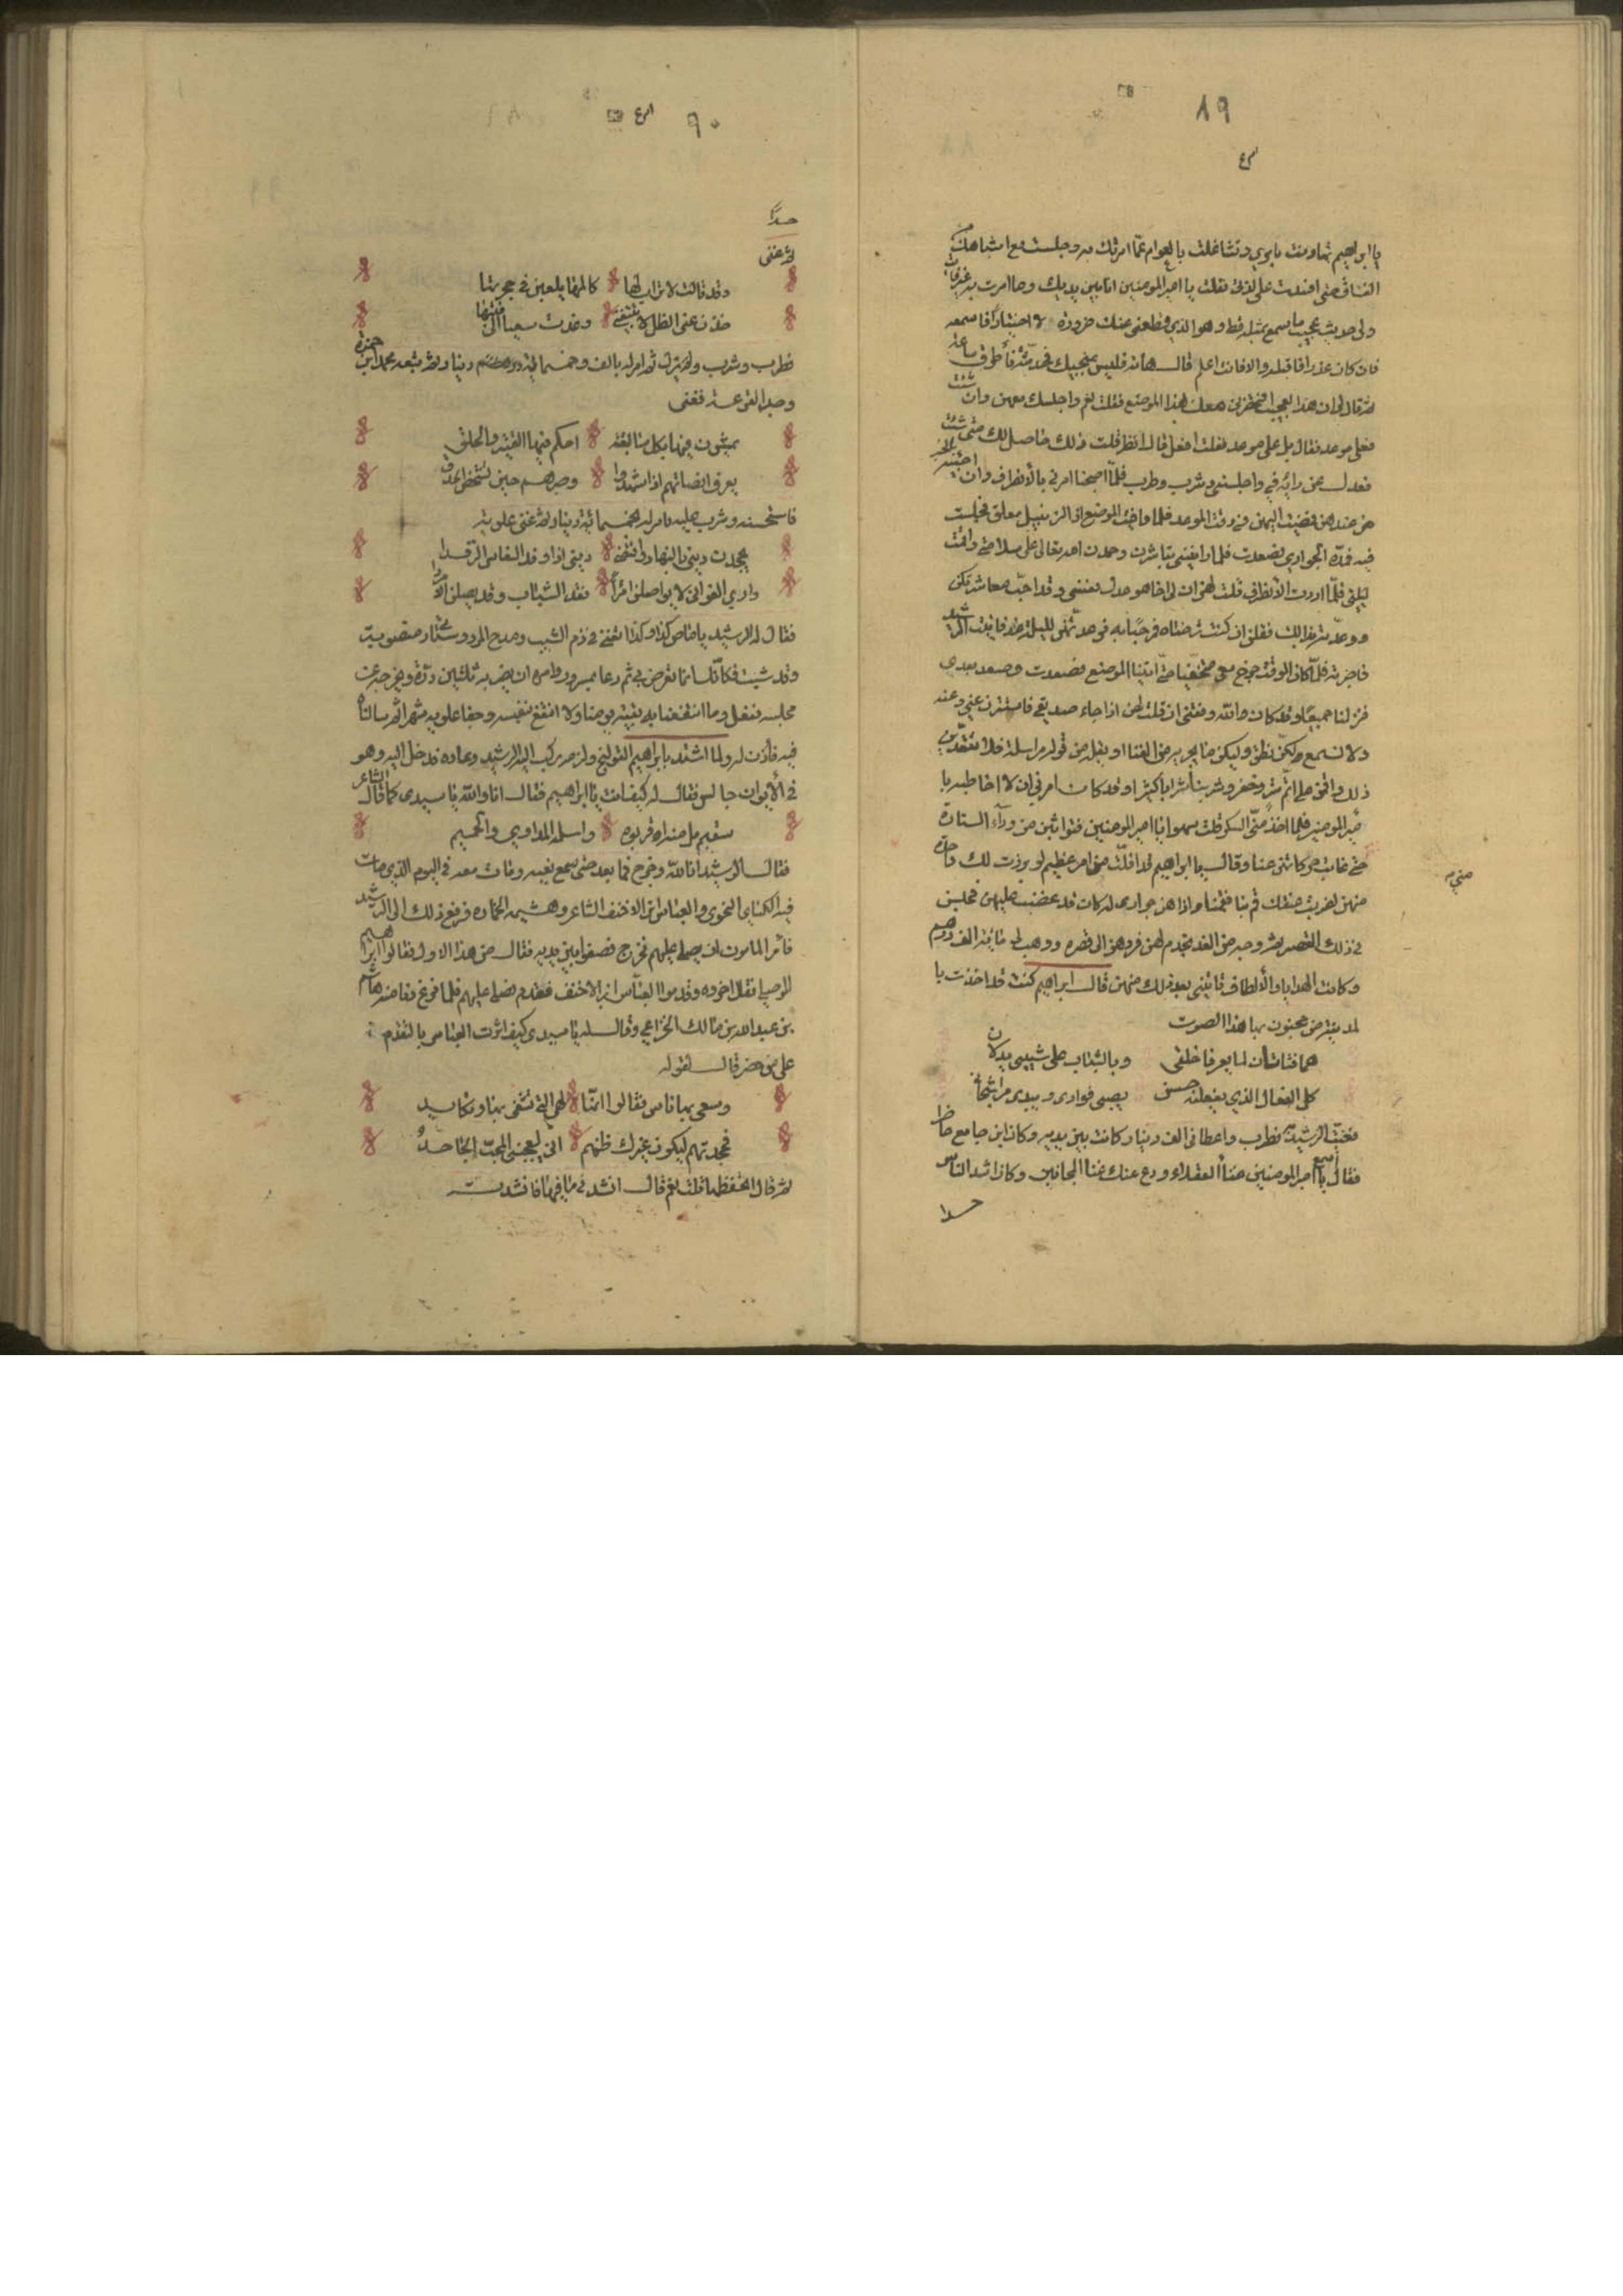 ٨٩
يا ابراهيم تهاونت بامري وتشاغلت بالعوام عما امرتك به وجلست مع اشباهك من
الفساق حتى افسدت على لذتى فقلت يا امير المومنين انا بين يديك وما امرت به غير فايت
ولى حديث عجيب ما يسمع بمثله قط وهو الذي قطعنى عنك ضرورة لا اختياراً فاسمعه
فان كان عذرا فاقبله والا فانت اعلم قال هاته فليس ينجيك فحدثته فأطرق ساعة
ثم قال ان هذا لعجيب افتحضرني معك هذا الموضع قلت نعم واجلسك معهن وان شئت
فعلى موعد فقال بل على موعد فقلت افعل قال انظر قلت ذلك حاصل لك متى شئت
فعدل عن رايه في واجلسنى وشرب وطرب فلما اصبحنا امرنى بالأنصراف وان اجيئه
من عندهن فمضيت اليهن في وقت الموعد فلما وافيت الموضع اذا الزنبيل معلق فجلست
فيه فمدّه الجواري فصعدت فلما راينني تباشرن وحمدن الله تعالى على سلامتي واقمت
ليلتى فلما اردت الانصراف قلت لهن ان لى اخا هو عدل نفسى وقد احبّ معاشرتكن
ووعدته بذلك فقلن ان كنت ترضاه فمرحبا به فوعدتهن لليلة غد فاتيت الرشيد
فاخبرته فلما كان الوقت خرج معي متخفيا حتى اتينا الموضع فصعدت وصعد بعدى
فنزلنا جميعًا وقد كان الله وفقنى ان قلت لهن اذا جاء صديقي فاستترن عنى وعنه
ولا نسمع لكن نطق وليكن ما يجرى من الغنا او يقل من قوله مراسلة فلم يتعدين
ذلك واقمن على اتم ستر وخفر وشربنا شرابا كثيرا وقد كان امرني ان لا اخاطبه يا
مير المومنين فلما اخذ منّي السكر قلت سهوا يا امير المومنين فتواثبن من ورآء الستارة
حتى غابت حركاتهن عنا وقال يا ابراهيم لقد افلتّ من امر عظيم لو برزت لك واحدة
منهن لضربت عنقك قم بنا فقمنا واذا هن جوارى له كان قد غضب عليهن فحبسن
في ذلك القصر ثم وجه من الغد بخدم لهن فردهن الى قصره ووهب لى مائة الف درهم
وكانت الهدايا والألطاف تاتينى بعد ذلك منهن قال ابراهيم كنت قد اخذت با
لمدينة من مجنون بها هذا الصوت
هما فتاتان لما يعرفا خلقى وبالشباب على شيبى يدلان
كل الفعال الذي يفعلنه حسن يصبى فوادى ويبدى سر اشجانى
فغنيته الرشيد فطرب واعطانى الف دينار كانت بين يديه وكان ابن جامع حاضرا
فقال اسمع يا امير المومنين غنا العقلاء ودع عنك غنا المجانين وكان اشد الناس
حسدا
منى
٩٠
حسدًا
ثم غنى
ولقد قالت لاتراب لها كالمها يلعبن في حجرتها
خذن عنى الظل لا يتبعنى وغدت سعيا الى قبتها
فطرب وشرب ثم امر له بالف وخمسمائة دينار ثم تبعه محمد ابن حمزة
وجه القرعة فغنى
يمشون فيها بكل سابغة احكم فيها القتير والحلق
يعرف انصافهم اذا شهدوا وصبرهم حين تشخص الحدق
فاستحسنه وشرب عليه وامر له بخمسمائة دينار ثم غنى علويه
يجحدن دينى بالنهار واقتضى دينى اذا وقد النعاس الرقدا
وارى الغوانى لا يواصلن امرأ فقد الشباب وقد يصلن الامردا
فقال له الرشيد يا عاض كذا وكذا اتغنى في ذم الشيب ومدح المرد وستارتى منصوبة
وقد شبت فكأنك انما تعرض بي ثم دعا بمسرور وامره ان يضربه ثلاثين درة ويخرجه عن
مجلسه ففعل وما انتفعنا به بقية يومنا ولا انتفع بنفسه وجفا علويه شهرا ثم سالناه
فيه فأذن له ولما اشتد بابراهيم القولنج ولزمه ركب اليه الرشيد وعاده فدخل اليه وهو
في الأبوان جالس فقال له كيف انت يا ابراهيم فقال انا والله يا سيدى كما قال الشاعر
سقيم مل منه اقربوه واسلمه المداوي والحميم
فقال الرشيد انا لله وخرج فما بعد حتى سمع نعيه ومات معه في اليوم الذي مات
فيه الكسائى النحوى والعباس ابن الاحنف الشاعر وهشيمه الخماره فرفع ذلك الى الرشيد
فأمر المامون ان يصلى عليهم فخرج فصفوا بين يديه فقال من هذا الاول فقالوا ابراهيم
الموصلي فقال اخروه وقدموا العباس ابن الاحنف فقدم فصلى عليهم فلما فرغ قام منه هاشم
بن عبد الله بن مالك الخزاعي وقال له يا سيدى كيف اثرت العباس بالتقدم
على من حضر قال لقوله
وسعى بها ناس فقالوا انها لهى التي تشقى بها وتكابد
فجحدتهم ليكون غيرك ظنهم انى ليعجبنى المحبّ الجاحدُ
ثم قال اتحفظها قلت نعم قال انشدنى باقيها فانشدت